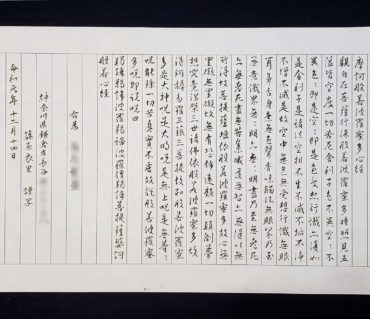 摩訶般若波羅蜜多心経
観自在菩薩行深般若波羅蜜多時照見五
蘊皆空度一切苦厄舎利子色不異空々不
異色即是空々即是色受想行識亦復如
是舎利子是諸法空相不生不滅不垢不浄
不増不減是故空中無色無受想行識無眼
耳鼻舌身意無色声香味触法無眼界乃至
無意識界無無明亦無無明盡乃至無老死
亦無老死盡無苦集滅道無智亦無得以無
所得故菩提薩埵依般若波羅蜜多故心無
罣礙無罣礙故無有恐怖遠離一切顛倒夢
想究竟涅槃三世諸佛依般若波羅蜜多故
得阿耨多羅三藐三菩提故知般若波羅蜜
多是大神呪是大明呪是無上呪是無等々
呪能除一切苦真實不虚故説般若波羅蜜
多呪即説呪曰
羯諦羯諦波羅羯諦波羅僧羯諦菩提薩婆訶
般若心経
右為
令和元年十二月十四日
神奈川県鎌倉市長谷
謹写